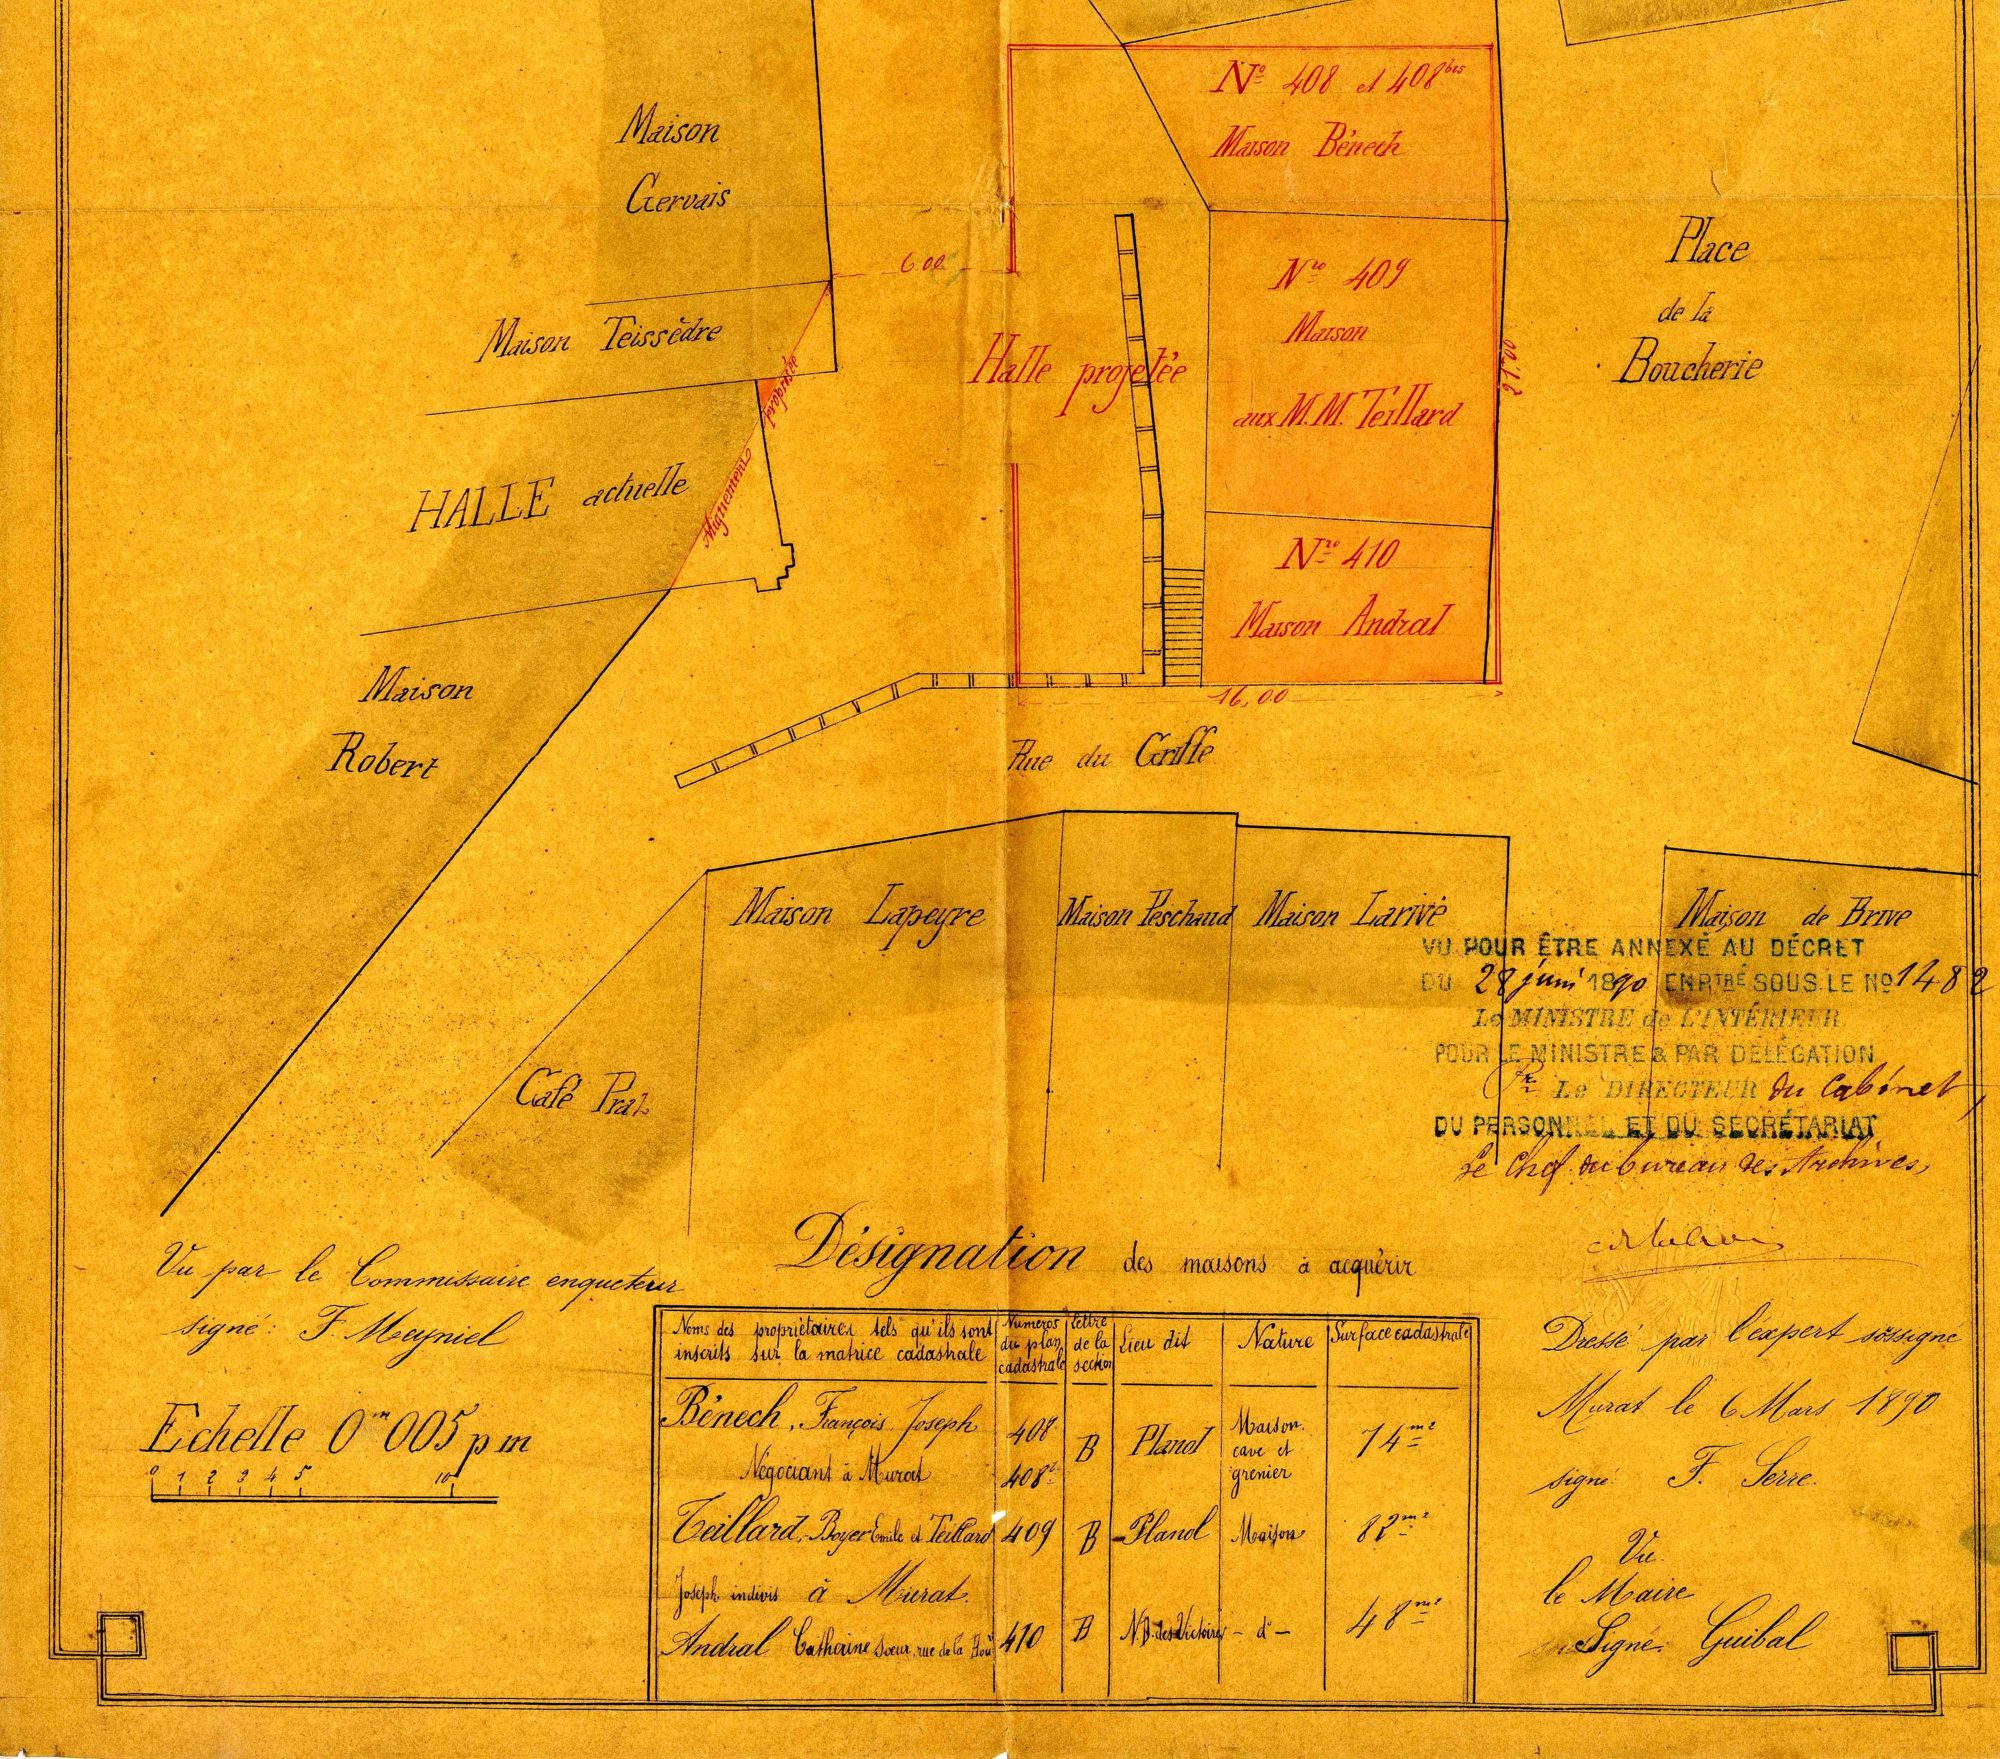 Nº 408 et 408 bis
Maison Bénech
Maison
Gervais
Place
de la
Boucherie
6.00
Nro 409
Maison
aux M.M. Teillard
Maison Teissèdre
Halle projetée
21.00
Alignement proposée
HALLE actuelle
Nro 410
Maison Andral
Maison
Robert
16,00
Rue du Griffe
Maison Lapeyre
Maison Peschaud
Maison Larivé
Maison de Brive
VU POUR ÊTRE ANNEXÉ AU DÉCRET
DU 28 juin 1890 ENRTRÉ SOUS LE Nº 1482
Le MINISTRE de L'INTÉRIEUR
POUR LE MINISTRE & PAR DÉLÉGATION
Pr Le DIRECTEUR du Cabinet,
DU PERSONNEL ET DU SECRÉTARIAT
Le Chef du bureau des Archives,
Café Prat
Désignation des maisons à acquérir
Vu par le Commissaire enqueteur
signé: F. Meyniel
Echelle 0m 005 p m
0 1 2 3 4 5 10
Noms des propriétaires tels qu'ils sont inscrits sur la matrice cadastrale
Numéros du plan cadastrale
Lettre de la section
Lieu dit
Nature
Surface cadastrale
Bénech, François Joseph
Négociant à Murat
408
408
B
Planol
Maison
cave et
grenier
74 m2
Teillard, Boyer Emile et Teillard 409 B Planol Maison 82 m2
Joseph indivis à Murat.
Andral Catherine soeur, rue de la 410 B N.D. des Victoires - do - 48 m2
Dressé par l'expert soussigné
Murat le 6 Mars 1890
signé: F. Serre.
Vu
le Maire
Signé: Guibal